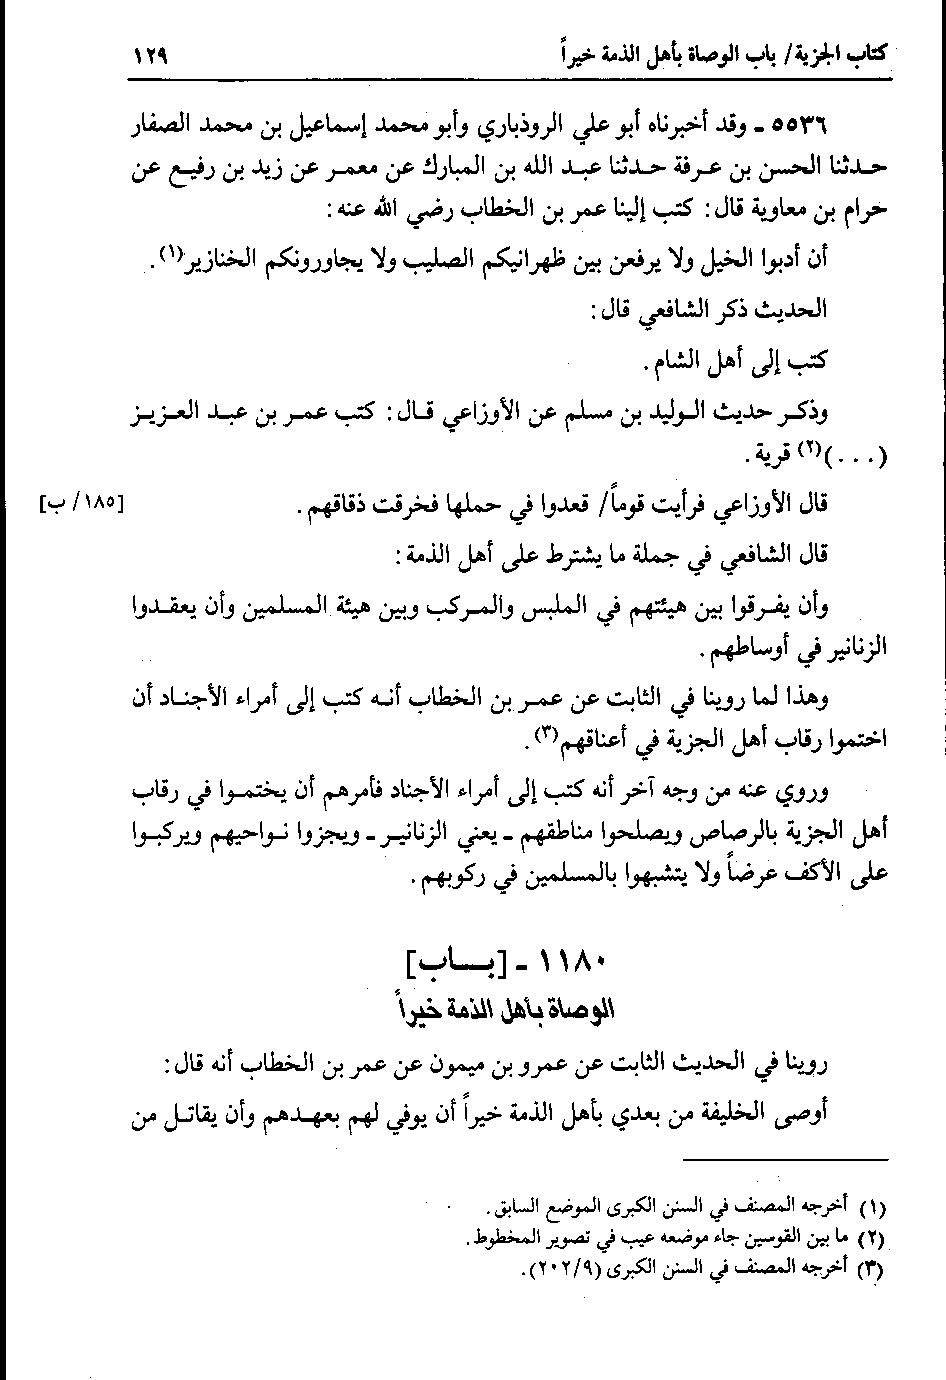 كتاب الجزية/ باب الوصاة بأهل الذمة خيراً ١٢٩
٥٥٣٦ ـ وقد أخبرناه أبو علي الروذباري وأبو محمد إسماعيل بن محمد الصفار
حدثنا الحسن بن عرفة حدثنا عبد الله بن المبارك عن معمر عن زيد بن رفيع عن
حرام بن معاوية قال: كتب إلينا عمر بن الخطاب رضي الله عنه:
أن أدبوا الخيل ولا يرفعن بين ظهرانيكم الصليب ولا يجاورونكم الخنازير(١).
الحديث ذكر الشافعي قال:
كتب إلى أهل الشام.
وذكر حديث الوليد بن مسلم عن الأوزاعي قال: كتب عمر بن عبد العزيز
(...)(٢) قرية.
قال الأوزاعي فرأيت قوماً/ قعدوا في حملها فخرقت ذقاقهم. [١٨٥/ ب]
قال الشافعي في جملة ما يشترط على أهل الذمة:
وأن يفرقوا بين هيئتهم في الملبس والمركب وبين هيئة المسلمين وأن يعقدوا
الزنانير في أوساطهم.
وهذا لما روينا في الثابت عن عمر بن الخطاب أنه كتب إلى أمراء الأجناد أن
اختموا رقاب أهل الجزية في أعناقهم(٣).
وروي عنه من وجه آخر أنه كتب إلى أمراء الأجناد فأمرهم أن يختموا في رقاب
أهل الجزية بالرصاص ويصلحوا مناطقهم ـ يعني الزنانير ـ ويجزوا نواحيهم ويركبوا
على الأكف عرضاً ولا يتشبهوا بالمسلمين في ركوبهم.
١١٨٠ ـ [باب]
الوصاة بأهل الذمة خيراً
روينا في الحديث الثابت عن عمرو بن ميمون عن عمر بن الخطاب أنه قال:
أوصى الخليفة من بعدي بأهل الذمة خيراً أن يوفي لهم بعهدهم وأن يقاتل من
(١) أخرجه المصنف في السنن الكبرى الموضع السابق.
(٢) ما بين القوسين جاء موضعه عيب في تصوير المخطوط.
(٣) أخرجه المصنف في السنن الكبرى (٢٠٢/٩).